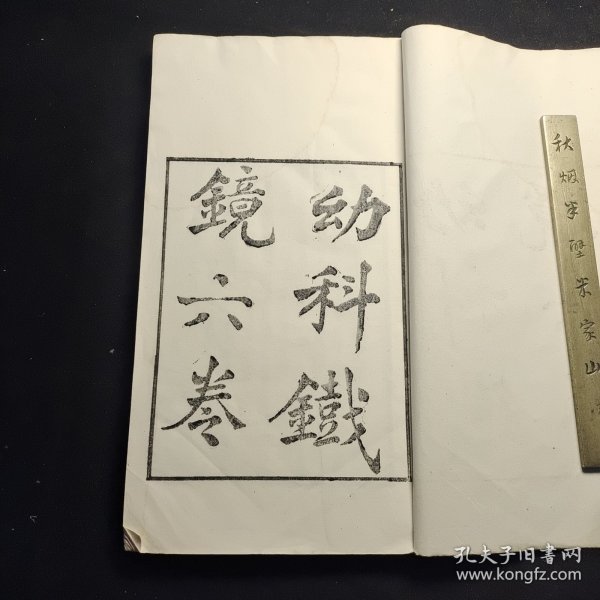 幼科鐵
鏡六卷
秋烟半壁米家山
孔夫子旧書网
www.kongfz.com